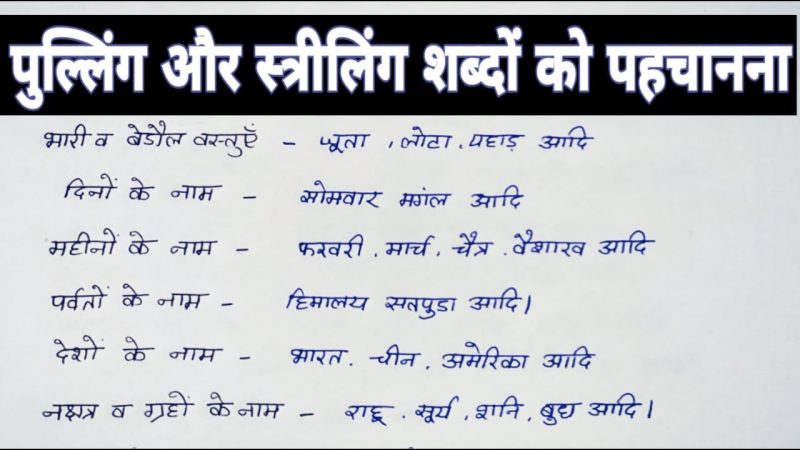 पुल्लिंग और स्त्रीलिंग शब्दों को पहचानना
भारी व बेडौल वस्तुएँ - जूता , लोटा , पहाड़ आदि
दिनों के नाम - सोमवार मगंल आदि
महीनों के नाम - फरवरी , मार्च , चैत्र , वैशाख आदि
पर्वतों के नाम - हिमालय सतपुडा आदि।
देशों के नाम - भारत , चीन , अमेरिका आदि
नक्षत्र व ग्रहों के नाम - राहू , सूर्य , शनि , बुध आदि।